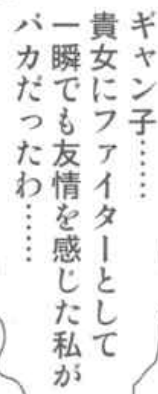 ギャン子……
貴女にファイターとして
一瞬でも友情を感じた私が
バカだったわ……